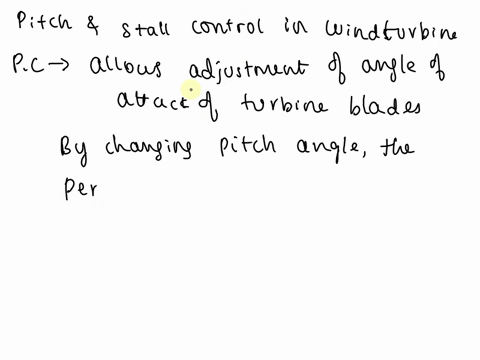 Pitch & stall control in windturbine
P.C → allows adjustment of angle of
attact of turbine blades
By changing pitch angle, the
per